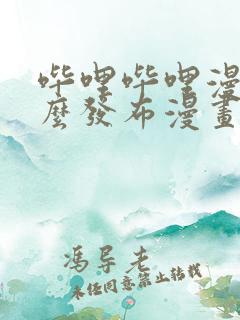 哔哩哔哩漫
麼發布漫畫
冯导老
未经同意禁止转载